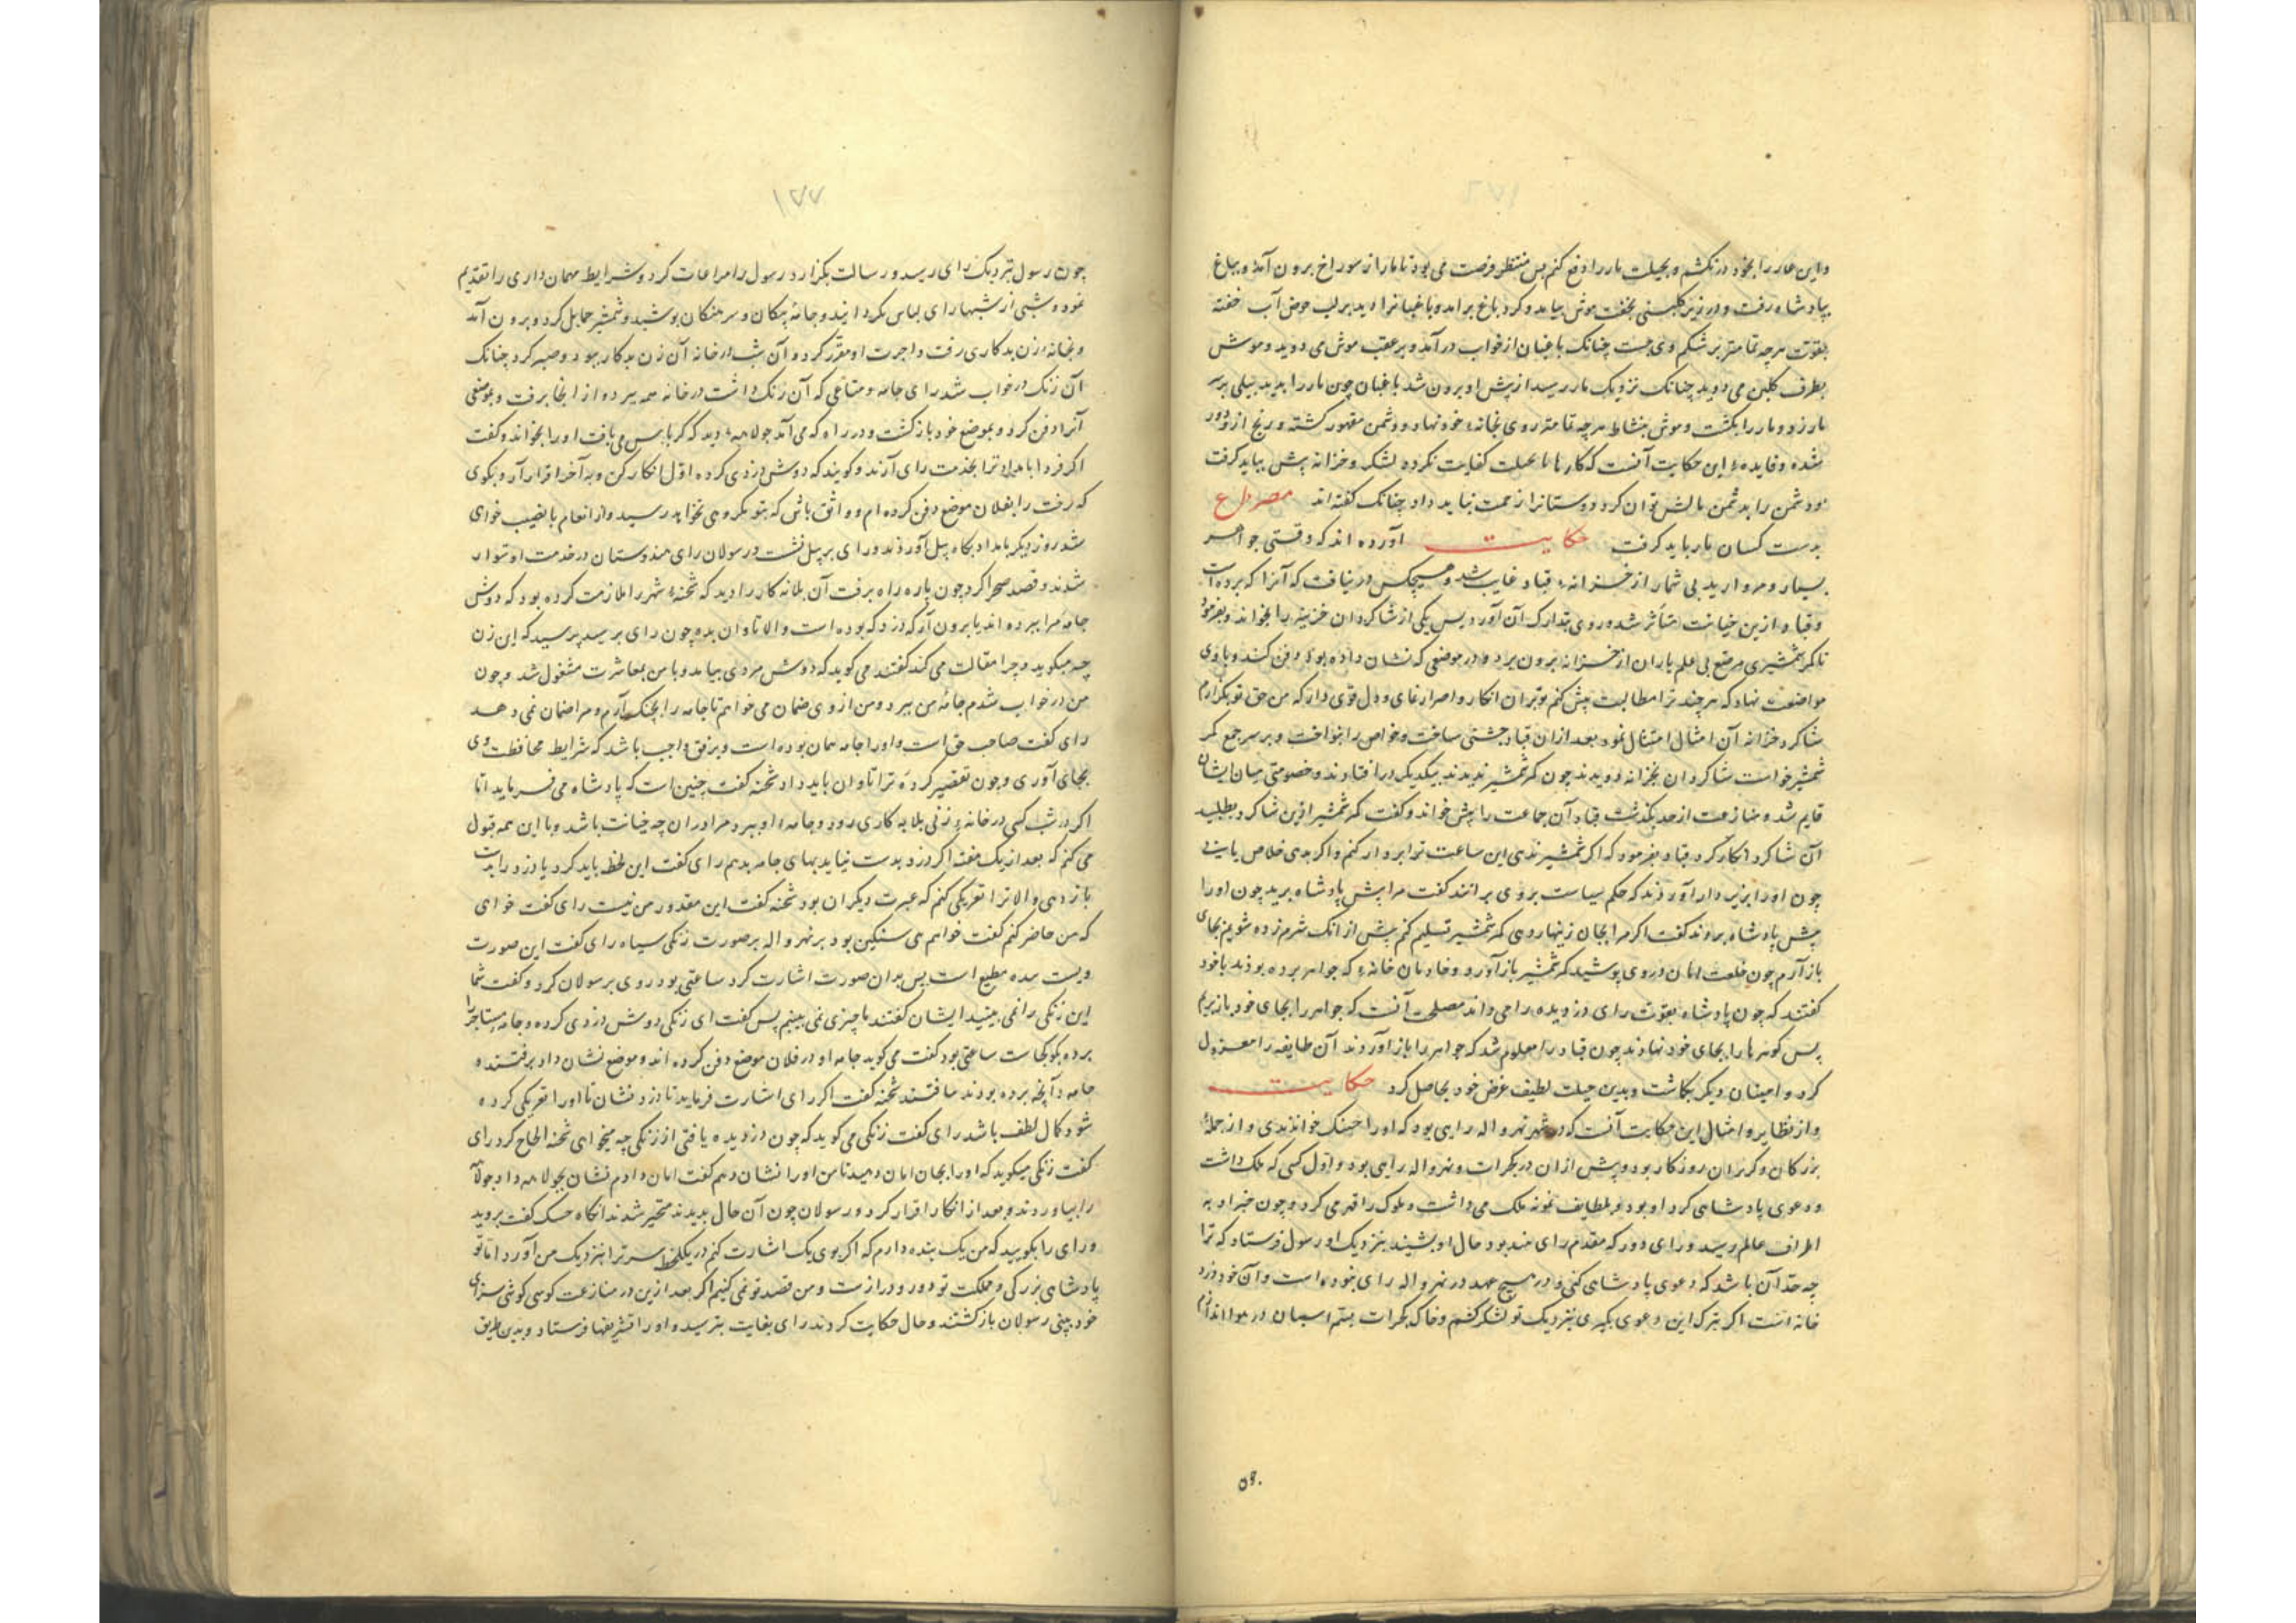 و این عار را بخود در نکشم و بحیلت مار را دفع کنم پس منتظر فرصت می بود تا مار از سوراخ برون آمد و بباغ
پادشاه رفت و در زیر گلبنی بخفت موش بیامد و گرد باغ برامد و باغبانرا دید بر لب حوض آب خفته
بقوت هرچه تمامتر بر شکم وی جست چنانک باغبان از خواب درآمد و بر عقب موش می دوید و موش
بطرف گلبن می دوید چنانک نزدیک مار رسید از پیش او برون شد باغبان چون مار را بدید بیلی بر سر
مار زد و مار را بکشت و موش بنشاط هرچه تمامتر روی بخانهٔ خود نهاد و دشمن مقهور کشته و رنج از و دور
شده و فایدهٔ این حکایت آنست که کارها تا بحیلت کفایت نکردد لشکر و خزانه پیش نباید کرفت
و دشمن را بدشمن مالش توان کرد و دوستانرا زحمت نباید داد چنانک کفته اند مصراع
بدست کسان مار باید کرفت حکایت آورده اند که وقتی جواهر
بسیار و مروارید بی شمار از خزانهٔ قباد غایب شد و هیچکس در نیافت که آنرا که برده است
و قباد ازین خیانت متأثر شده روی بتدارک آن آورد پس یکی از شاکردان خزینه را بخواند و بفرمود
تا کمر شمشیری مرصع بی علم یاران از خزانه برون برد و در موضعی که نشان داده بود دفن کند و با وی
مواضعت نهاد که هرچند ترا مطالبت پیش کنم تو بران انکار و اصرار نمای و دل قوی دار که من حق تو بکزارم
شاکرد خزانه آن امثال امتثال نمود بعد ازان قباد جشنی ساخت و خواص را بنواخت و بر سر جمع کمر
شمشیر خواست شاکردان بخزانه دویدند چون کمر شمشیر ندیدند بیکدیکر در افتادند و خصومتی میان ایشان
قایم شد و منازعت از حد بکذشت قباد آن جماعت را پیش خواند و کفت کمر شمشیر ازین شاکرد بطلبید
آن شاکرد انکار کرد قباد بفرمود که اکر شمشیر ندهی این ساعت ترا بر دار کنم و اکر بدهی خلاص یابی
چون او را بزیر دار آوردند که حکم سیاست بر وی برانند کفت مرا پیش پادشاه برید چون او را
پیش پادشاه بردند کفت اکر مرا بجان زینهار دهی کمر شمشیر تسلیم کنم پیش از انک شرم زده شویم بجای
باز آرم چون خلعت امان در وی پوشید کمر شمشیر باز آورد و خادمان خانهٔ که جواهر برده بودند با خود
کفتند که چون پادشاه بقوت رای دزدیده را می داند مصلحت آنست که جواهر را بجای خود باز بریم
پس کوهرها را بجای خود نهادند چون قباد را معلوم شد که جواهر را باز آوردند آن طایفه را معزول
کرد و امینان دیکر بکاشت و بدین حیلت لطیف غرض خود بحاصل کرد حکایت
و از نظایر و امثال این حکایت آنست که در شهر نهرواله رایی بود که او را خواندندی و از جملهٔ
بزرکان و کربزان روزکار بود و پیش ازان در کجرات و نهرواله رایی بود و اول کسی که ملک داشت
و دعوی پادشاهی کرد او بود و بلطایف نمونه ملک می داشت و ملوک را قهر می کرد و چون خبر او به
اطراف عالم رسید و رای دور که مقدم رای هند بود حال او بشنید بنزدیک او رسول فرستاد که ترا
چه حد آن باشد که دعوی پادشاهی کنی و در هیچ عهد در نهرواله رای نبوده است و آن خود دزد
خانه است اکر ترک این دعوی نکیری بنزدیک تو لشکر کشم و خاک کجرات بسم اسبان در هوا اندازم
۵۹۰
۱۷۷
چون رسول نزدیک رای رسید و رسالت بکزارد رسول را مراعات کرد و شرایط مهمان داری را تقدیم
نمود و شبی از شبها رای لباس بکردانید و جامهٔ پیکان و سرهنکان بوشید و شمشیر حمایل کرد و برون آمد
و بخانهٔ زن بدکاری رفت و اجرت او مقرر کرد و آن شب در خانه آن زن بدکار ببود و صبر کرد چنانک
آن زنک در خواب شد رای جامه و متاعی که آن زنک داشت در خانه همه ببرد و از انجا برفت و بموضعی
آنرا دفن کرد و بموضع خود باز کشت و در راه که می آمد جولاهه دید که کرباس می بافت او را بخواند و کفت
اکر فردا بامداد ترا بخدمت رای آرند و کویند که دوش دزدی کرده اول انکار کن و به آخر اقرار آر و بکوی
که رخت را بفلان موضع دفن کرده ام و واثق باش که بتو مکروهی نخواهد رسید و از انعام با نصیب خواهی
شد روز دیکر بامداد بکاه پیل آوردند و رای بر پیل نشست و رسولان رای هندوستان در خدمت او سوار
شدند و قصد صحرا کرد چون پاره راه برفت آن بلانه کار را دید که شحنهٔ شهر را ملازمت کرده بود که دوش
جامه مرا ببرده اند یا برون آر که دزد که بوده است و الا تاوان بده چون رای برسید پرسید که این زن
چه میکوید و چرا مقالت می کند کفتند می کوید که دوش مردی بیامد و با من بمعاشرت مشغول شد و چون
من در خواب شدم جامه من ببرد و من از وی ضمان می خواهم تا جامه را بچنک آرم و مرا ضمان نمی دهد
رای کفت صاحب حق است و او را جامه همان بوده است و بر تو واجب باشد که شرایط محافظت وی
بجای آوری و چون تقصیر کردهٔ ترا تاوان باید داد شحنه کفت چنین است که پادشاه می فرماید اما
اکر در شب کسی در خانهٔ زنی بلایه کاری رود و جامهٔ او ببرد مرا دران چه خیانت باشد و با این همه قبول
می کنم که بعد از یک هفته اکر دزد بدست نیاید بهای جامه بدهم رای کفت این لحظه باید کرد یا دزد را بدست
باز دهی و الا ترا تعریکی کنم که عبرت دیکران بود شحنه کفت این مقدور من نیست رای کفت خواهی
که من حاضر کنم کفت خواهم بتی سنکین بود بر نهرواله بر صورت زنکی سیاه رای کفت این صورت
مطیع است پس بدان صورت اشارت کرد ساعتی بود روی بر رسولان کرد و کفت شما
این زنکی را نمی بینید ایشان کفتند ما چیزی نمی بینیم پس کفت ای زنکی دوش دزدی کرده و جامه
برده بکو کجاست ساعتی بود کفت می کوید جامه او در فلان موضع دفن کرده اند و موضع نشان داد برفتند و
جامه و آنچه برده بودند یافتند شحنه کفت اکر رای اشارت فرماید تا دزد نشان تا او را تعریکی کرده
شود کمال لطف باشد رای کفت زنکی می کوید که چون دزدیده یافتی از زنکی چه میخواهی شحنه الحاح کرد رای
کفت زنکی میکوید که او را بجان امان دهید تا من او را نشان دهم کفت امان دادم نشان بجولاهه داد جولاهه
را بیاوردند و بعد از انکار اقرار کرد و رسولان چون آن حال بدیدند متحیر شدند انکاه کفت بروید
و رای را بکویید که من یک بنده دارم که اکر بوی یک اشارت کنم در یک لحظه سر ترا بنزدیک من آورد اما تو
پادشاهی بزرکی و مملکت تو دور و درازست و من قصد تو نمی کنم اکر بعد ازین در منازعت کوسی کوشی سزای
خود بینی رسولان باز کشتند و حال حکایت کردند رای بغایت بترسید و او را تشریفها فرستاد و بدین طریق